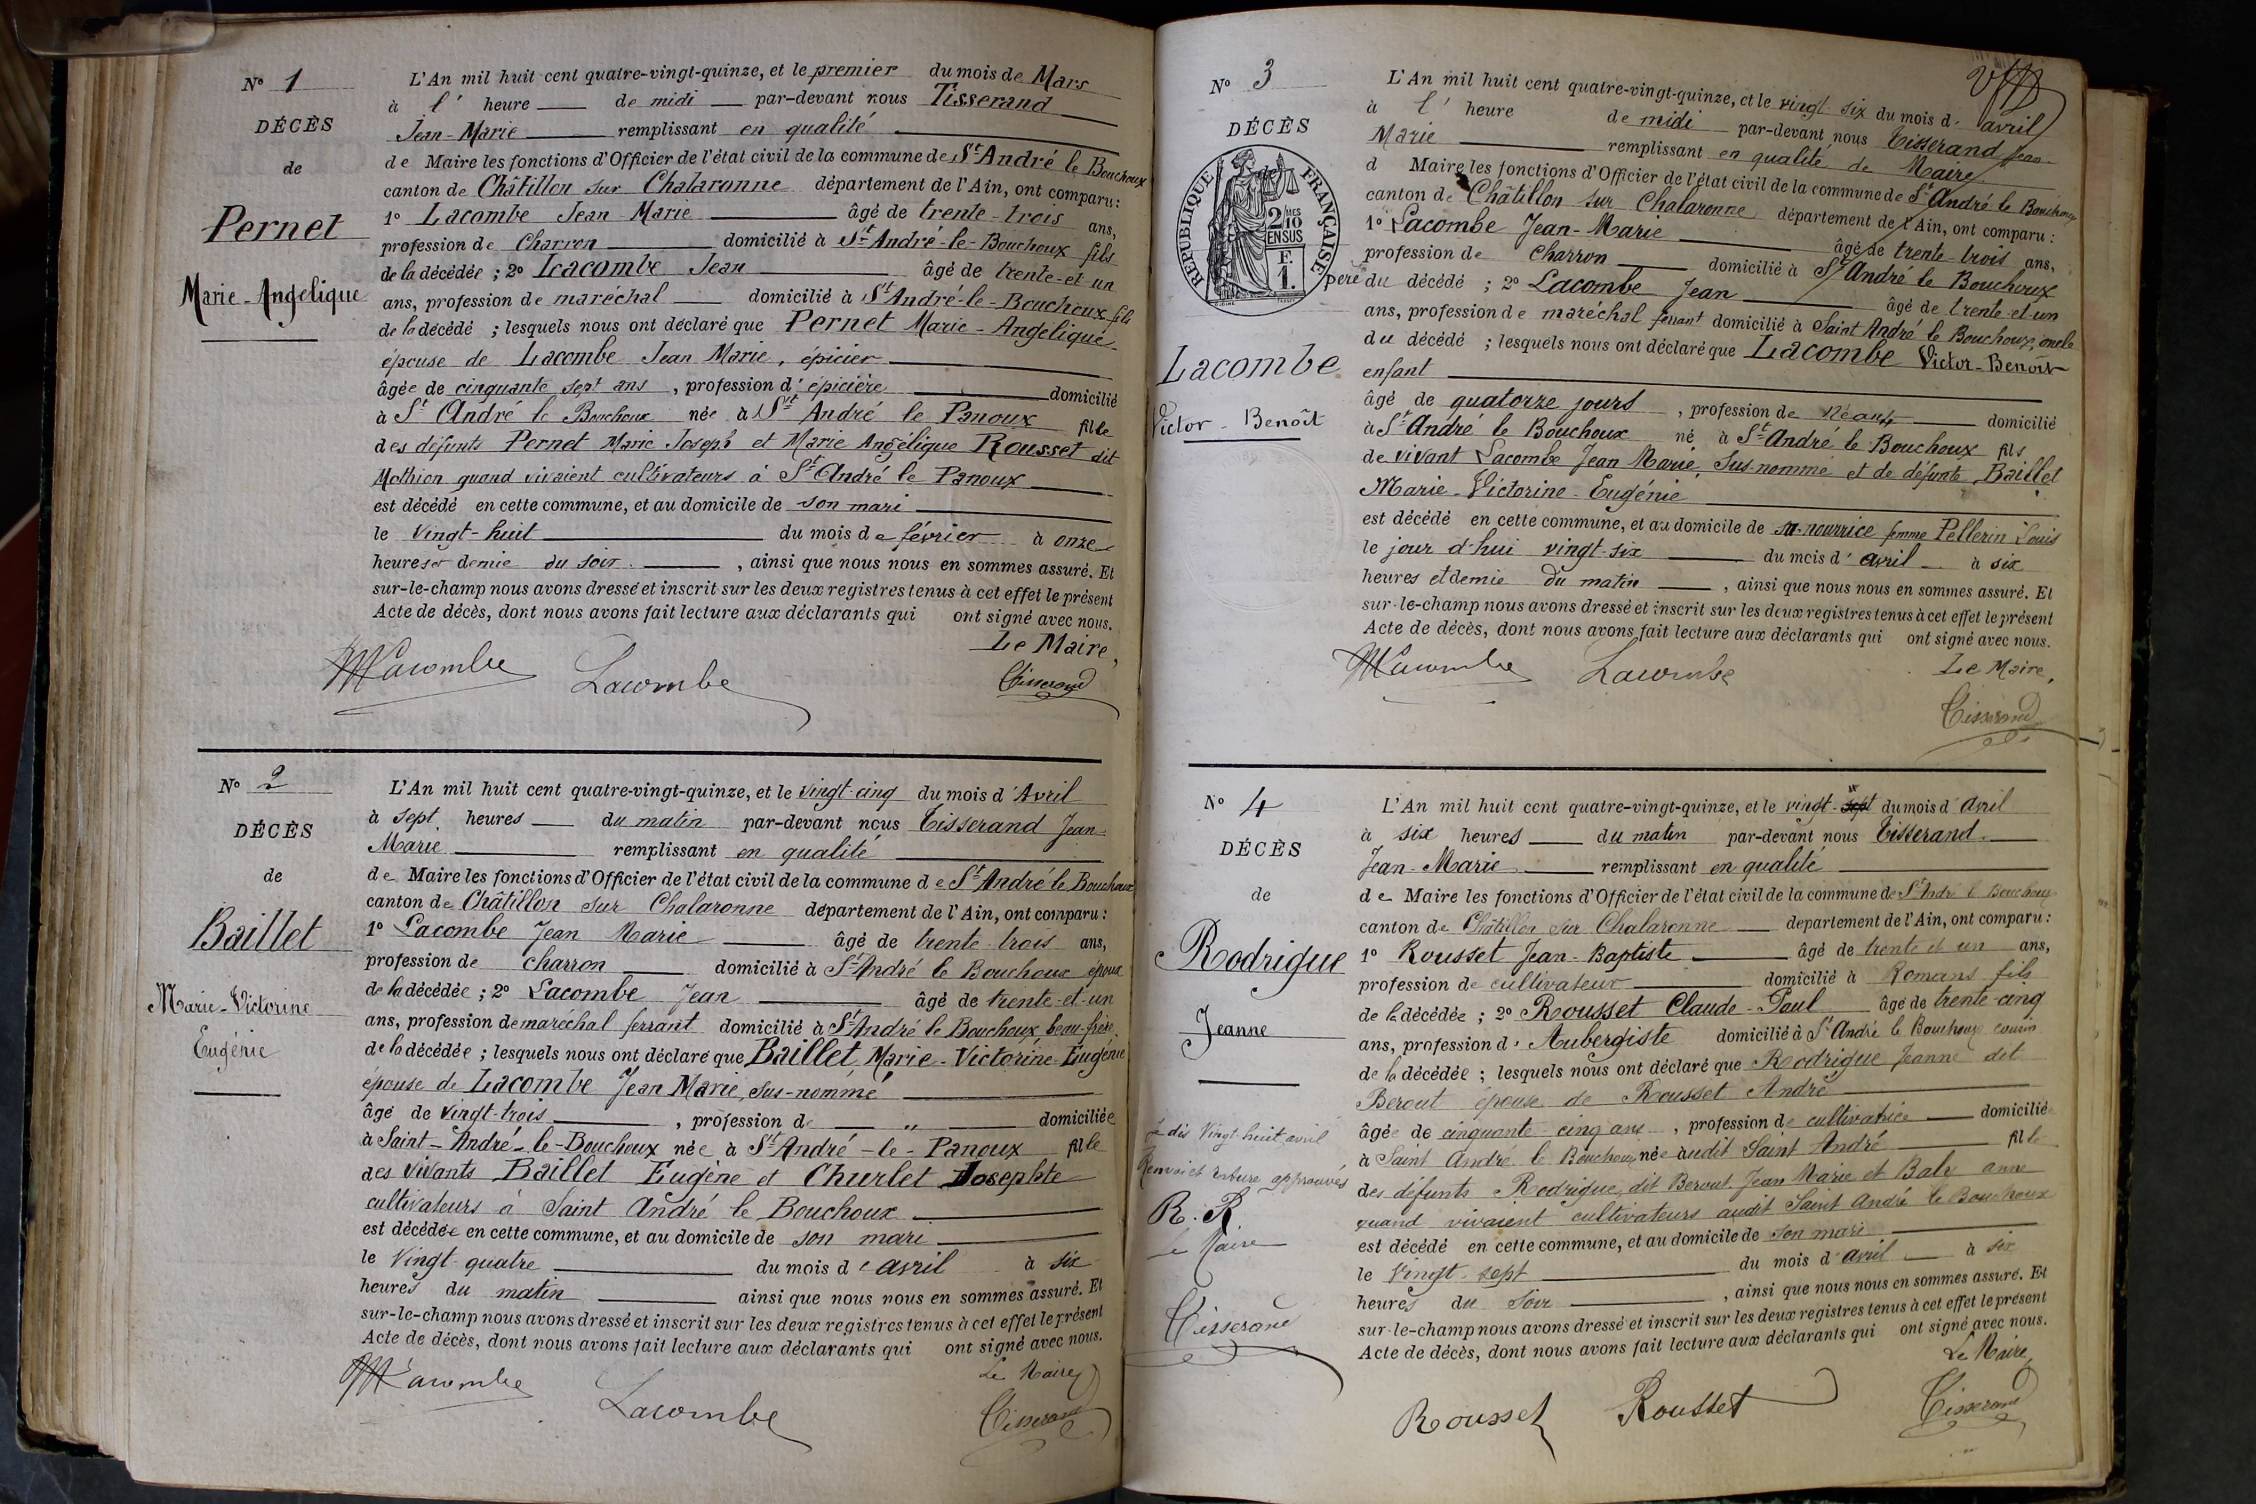 N° 1
DÉCÈS
de
Pernet
Marie-Angélique
L'An mil huit cent quatre-vingt-quinze, et le premier du mois de Mars
à l' heure de midi par-devant nous Tisserand
Jean-Marie remplissant en qualité
de Maire les fonctions d'Officier de l'état civil de la commune de St André le Bouchoux
canton de Châtillon sur Chalaronne département de l'Ain, ont comparu:
1° Lacombe Jean Marie âgé de trente-trois ans,
profession de Charron domicilié à St André-le-Bouchoux fils
de la décédée ; 2° Lacombe Jean âgé de trente-et un
ans, profession de maréchal domicilié à St André-le-Bouchoux fils
de la décédé ; lesquels nous ont déclaré que Pernet Marie-Angélique
épouse de Lacombe Jean Marie, épicier
âgée de cinquante sept ans , profession d' épicière domicilié
à St André le Bouchoux née à St André le Panoux fille
des défunts Pernet Marie Joseph et Marie Angélique Rousset dit
Mothion quand vivaient cultivateurs à St André le Panoux
est décédé en cette commune, et au domicile de son mari
le vingt-huit du mois de février à onze
heures et demie du soir , ainsi que nous nous en sommes assuré. Et
sur-le-champ nous avons dressé et inscrit sur les deux registres tenus à cet effet le présent
Acte de décès, dont nous avons fait lecture aux déclarants qui ont signé avec nous.
Le Maire,
JMLacombe Lacombe Tisserand
N° 2
DÉCÈS
de
Baillet
Marie-Victorine
Eugénie
L'An mil huit cent quatre-vingt-quinze, et le vingt-cinq du mois d'Avril
à sept heures du matin par-devant nous Tisserand Jean-
Marie remplissant en qualité
de Maire les fonctions d'Officier de l'état civil de la commune de St André le Bouchoux
canton de Châtillon sur Chalaronne département de l'Ain, ont comparu :
1° Lacombe Jean Marie âgé de trente-trois ans,
profession de charron domicilié à St André le Bouchoux époux
de la décédée ; 2° Lacombe Jean âgé de trente-et-un
ans, profession de maréchal ferrant domicilié à St André le Bouchoux, beau-frère
de la décédée ; lesquels nous ont déclaré que Baillet Marie-Victorine-Eugénie
épouse de Lacombe Jean Marie, sus-nommé
âgé de vingt-trois , profession d " domiciliée
à Saint-André-le-Bouchoux née à St André-le-Panoux fille
des vivants Baillet Eugène et Churlet Josephte
cultivateurs à Saint André le Bouchoux
est décédée en cette commune, et au domicile de son mari
le vingt-quatre du mois d'avril à six
heures du matin ainsi que nous nous en sommes assuré. Et
sur-le-champ nous avons dressé et inscrit sur les deux registres tenus à cet effet le présent
Acte de décès, dont nous avons fait lecture aux déclarants qui ont signé avec nous.
Le Maire
JMLacombe Lacombe Tisserand
N° 3
DÉCÈS
RÉPUBLIQUE FRANÇAISE
2/10 MES
EN SUS
F.
1.
Lacombe
Victor-Benoît
L'An mil huit cent quatre-vingt-quinze, et le vingt-six du mois d' avril
à l' heure de midi par-devant nous Tisserand Jean-
Marie remplissant en qualité de Maire
d Maire les fonctions d'Officier de l'état civil de la commune de St André le Bouchoux
canton de Châtillon sur Chalaronne département de l'Ain, ont comparu :
1° Lacombe Jean-Marie âgé de trente-trois ans,
profession de charron domicilié à St André le Bouchoux
père du décédé ; 2° Lacombe Jean âgé de trente-et-un
ans, profession de maréchal ferrant domicilié à Saint André le Bouchoux, oncle
du décédé ; lesquels nous ont déclaré que Lacombe Victor-Benoît
enfant
âgé de quatorze jours , profession de néant domicilié
à St André le Bouchoux né à St André le Bouchoux fils
de vivant Lacombe Jean Marie, sus-nommé et de défunte Baillet
Marie-Victorine-Eugénie
est décédé en cette commune, et au domicile de sa nourrice femme Pellerin Louis
le jour d'hui vingt-six du mois d' avril à six
heures et demie du matin , ainsi que nous nous en sommes assuré. Et
sur-le-champ nous avons dressé et inscrit sur les deux registres tenus à cet effet le présent
Acte de décès, dont nous avons fait lecture aux déclarants qui ont signé avec nous.
Le Maire,
JMLacombe Lacombe Tisserand
N° 4
DÉCÈS
de
Rodrigue
Jeanne
Vingt-huit avril
Renvoi et rature approuvés
R. R.
Le Maire
Tisserand
L'An mil huit cent quatre-vingt-quinze, et le vingt-sept du mois d' avril
à six heures du matin par-devant nous Tisserand
Jean-Marie remplissant en qualité
de Maire les fonctions d'Officier de l'état civil de la commune de St André le Bouchoux
canton de Châtillon sur Chalaronne département de l'Ain, ont comparu :
1° Rousset Jean-Baptiste âgé de trente et un ans,
profession de cultivateur domicilié à Romans fils
de la décédée ; 2° Rousset Claude-Paul âgé de trente-cinq
ans, profession d' Aubergiste domicilié à St André le Bouchoux cousin
de la décédée ; lesquels nous ont déclaré que Rodrigue Jeanne dit
Berout épouse de Rousset André
âgée de cinquante-cinq ans , profession de cultivatrice domiciliée
à Saint André le Bouchoux née audit Saint André fille
des défunts Rodrigue dit Berout Jean Marie et Baly anne
quand vivaient cultivateurs audit Saint André le Bouchoux
est décédé en cette commune, et au domicile de son mari
le vingt-sept du mois d'avril à six
heures du soir , ainsi que nous nous en sommes assuré. Et
sur-le-champ nous avons dressé et inscrit sur les deux registres tenus à cet effet le présent
Acte de décès, dont nous avons fait lecture aux déclarants qui ont signé avec nous.
Le Maire,
Rousset Rousset Tisserand